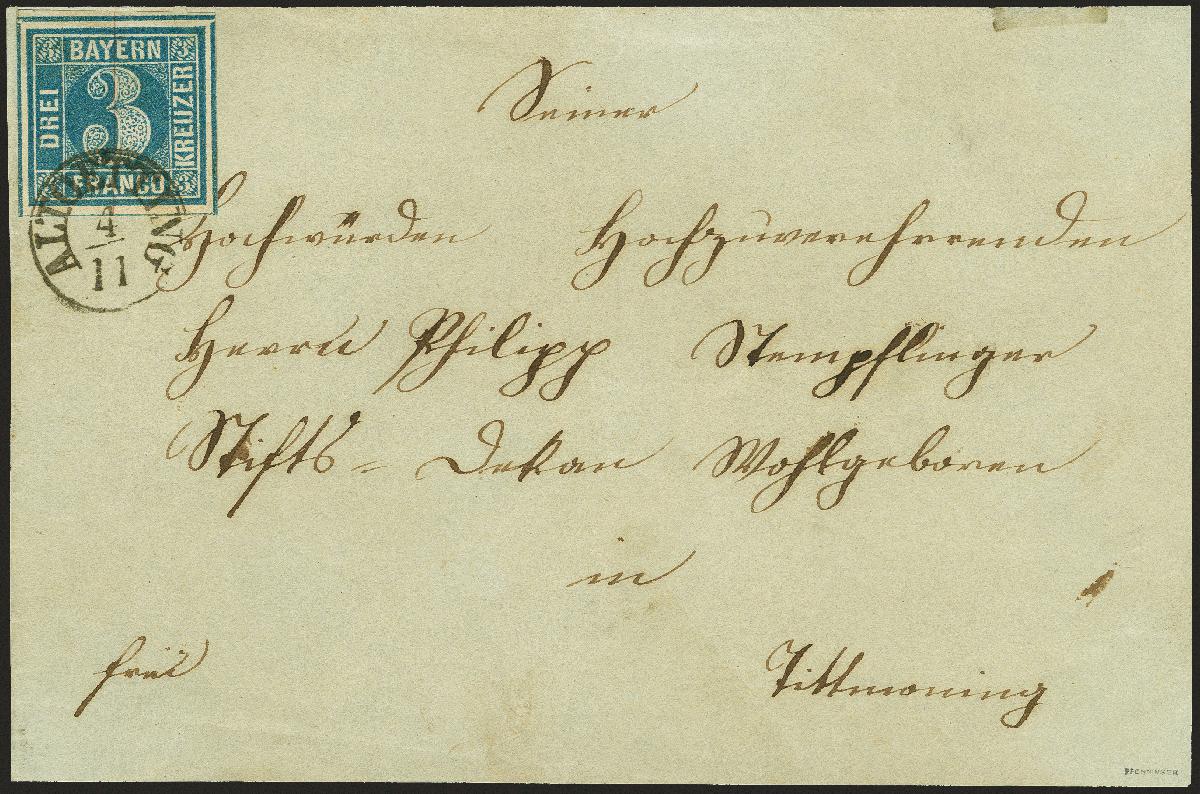 BAYERN
DREI
3
KREUZER
FRANCO
ALTOETTING
4
11
Seiner
Hochwürden Hochzuverehrrenden
Herrn Philipp Stempflinger
Stifts- Dekan Wohlgeboren
in
frei
Tittmoning
PFENNINGER